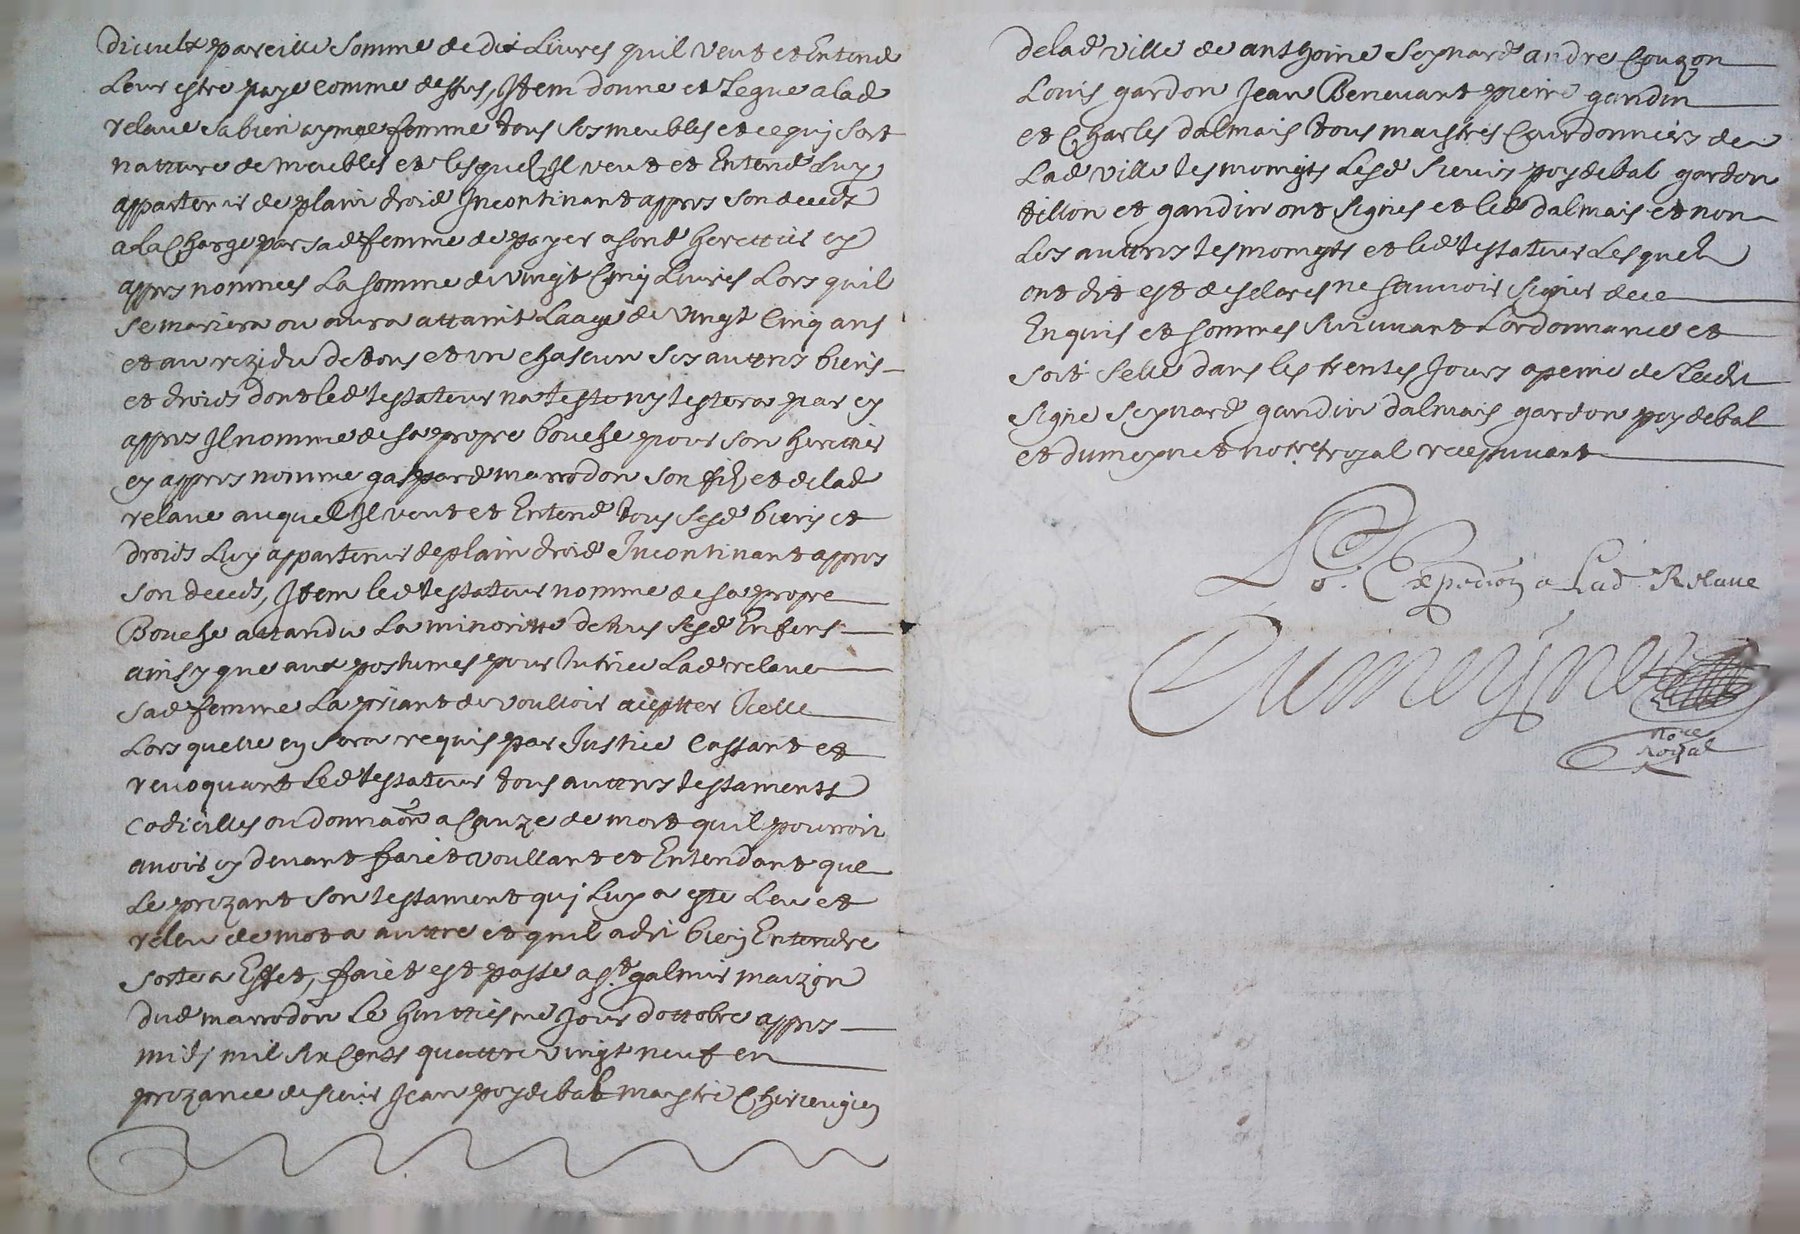 diceulx pareille somme de dix Livres quil veut et Entend
Leur estre paye comme dessus, Item donne et Legue a lad
relaue sa bien aymee femme tous ses meubles et ce quj sort
nature de meubles et lesquelz Il veut et Entend Luy
appartenir de plain droid Incontinant appres son deceds
a La Charge par sad femme de payer a sond herettier cy
appres nommes La somme de vingt Cinq Livres Lors quil
se mariera ou aura attaint Laage de vingt Cinq ans
et au rezidu de tous et un chascun ses auttres biens
et droids dont led testateur na teste ny testera par cy
appres Il nomme de sa propre bouche pour son herettier
cy appres nomme gaspard marrodon son filz et de lad
relaue auquel Il veut et Entend tous sesd biens et
droids Luy appartenir de plain droid Incontinant appres
son deceds, Item led testateur nomme de sa propre
Bouche attandu La minoritte de tous sesd Enfens
ainsy que aux postumes pour tutrice Lad relaue
sad femme La priant de voulloir accepter Icelle
Lors quelle en sera requis par Justice Cassant et
revoquant Led testateur tous auttres testaments
Codicilles ou donnaons a Cauze de mort quil pourroit
avoir cy devant faict voullant et Entendant que
Le prezant son testament quj Luy a este Leu et
releu de mot a auttre et quil a dit bien Entendre
sorte a Effet, faict et passe a st galmier maizon
dud marrodon Le huittiesme Jour dottobre appres
midj mil six Cents quattre vingt neuf en
prezance de sieur Jean poydebat maistre Chirurgien
de lad ville de anthoine Seynard andre Couzon
Louis gardon Jean Benevant pierre gandin
et Charles dalmais tous maistres Courdonniers de
Lad ville tesmoingts Lesd sieurs poydebat gardon
tillon et gandin ont signes et led dalmais et non
Les auttres tesmoingts et led testateur Lesquelz
ont dit et declares ne scauvoir signer de ce
Enquis et sommes suivant Lordonnance et
soit selle dans les trentes Jours a peine de
signe Seynard gandin dalmais gardon poydebat
et dumeynet notre royal recepuvant
Expedion a Lad Relaue
Dumeynet
nore
Royal